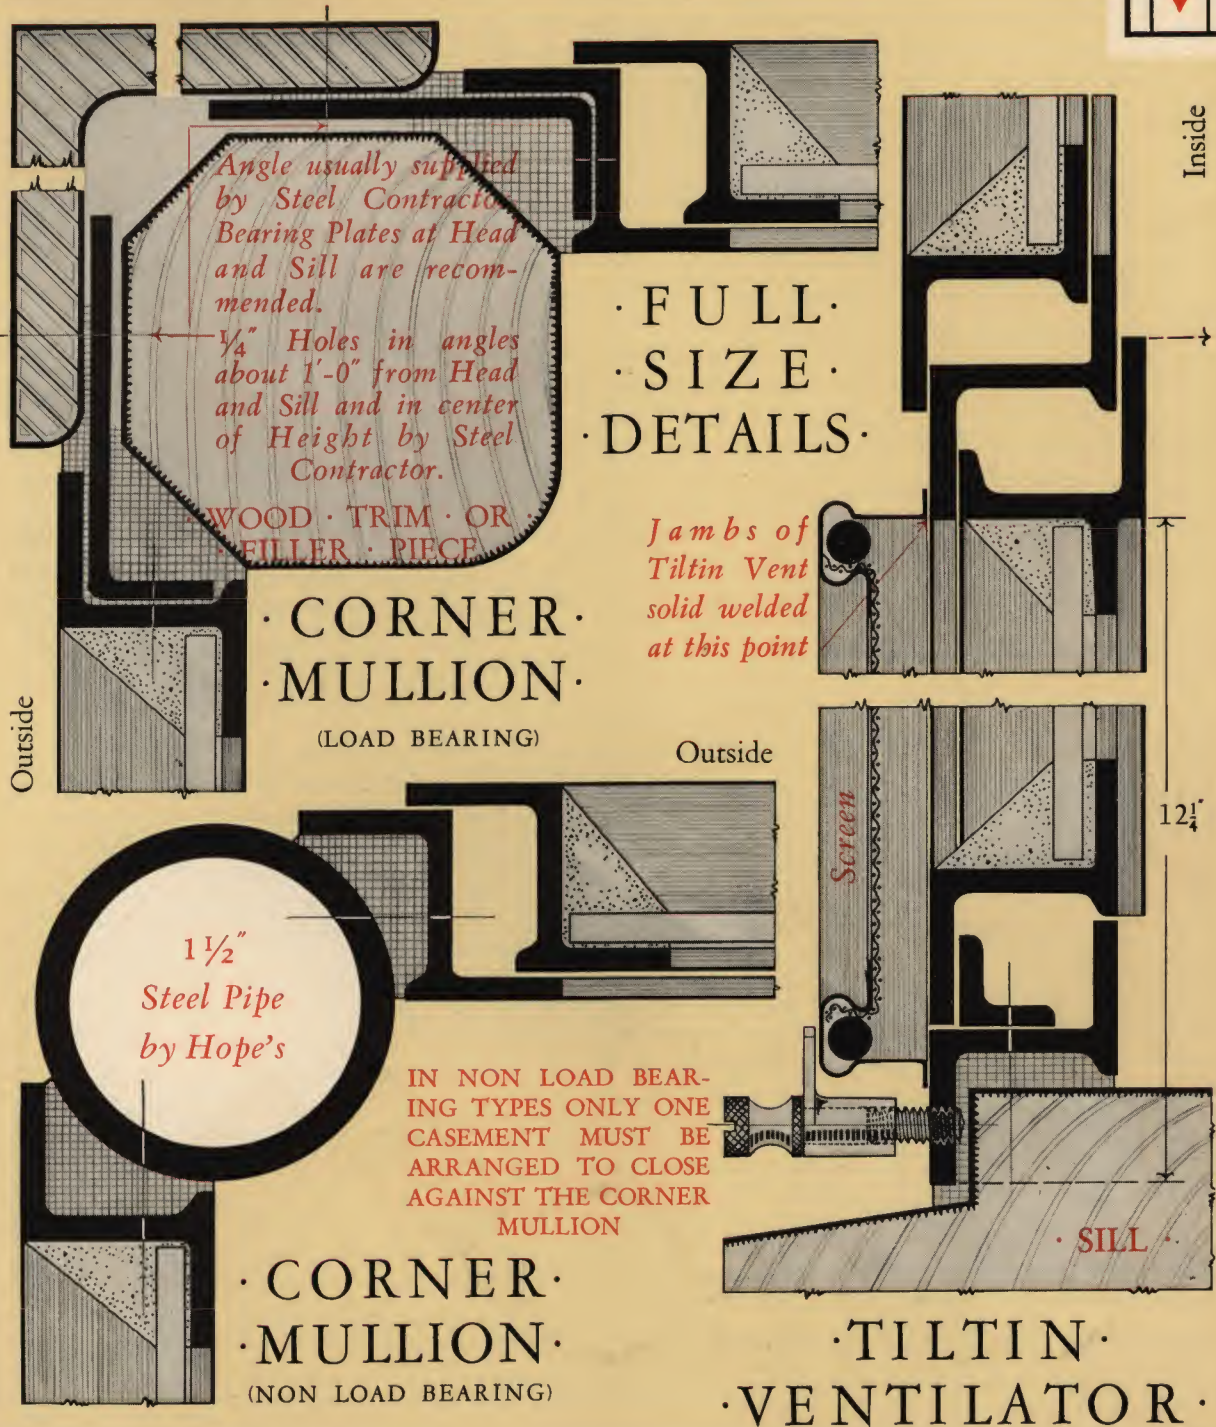 Inside
Angle usually supplied
by Steel Contractor
Bearing Plates at Head
and Sill are recom-
mended.
¼" Holes in angles
about 1'-0" from Head
and Sill and in center
of Height by Steel
Contractor.
· WOOD · TRIM · OR ·
· FILLER · PIECE
· FULL ·
· SIZE ·
· DETAILS ·
Jambs of
Tiltin Vent
solid welded
at this point
· CORNER ·
· MULLION ·
(LOAD BEARING)
Outside
Outside
Screen
12¼"
1½"
Steel Pipe
by Hope's
IN NON LOAD BEAR-
ING TYPES ONLY ONE
CASEMENT MUST BE
ARRANGED TO CLOSE
AGAINST THE CORNER
MULLION
· SILL ·
· CORNER ·
· MULLION ·
(NON LOAD BEARING)
· TILTIN ·
· VENTILATOR ·